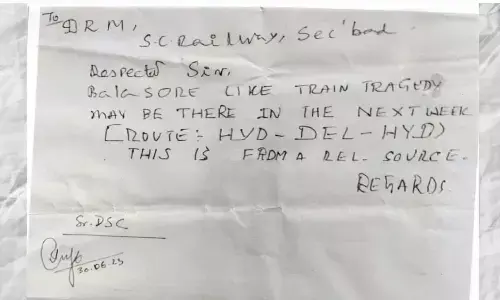 To
DRM,
S.C. Railway, Sec'bad.
Respected Sir,
BalaSORE LIKE TRAIN TRAGEDY
MAY BE THERE IN THE NEXT WEEK
[ROUTE:- HYD - DEL - HYD)
THIS IS FROM A REL. SOURCE.
REGARDS.
Sr. DSC
30.06.23